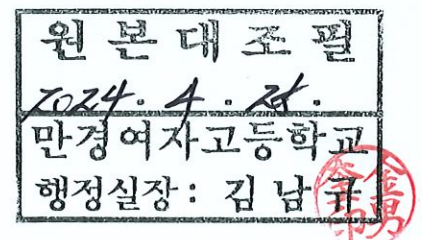 원본대조필
2024. 4.
만경여자고등학교
행정실장: 김남규